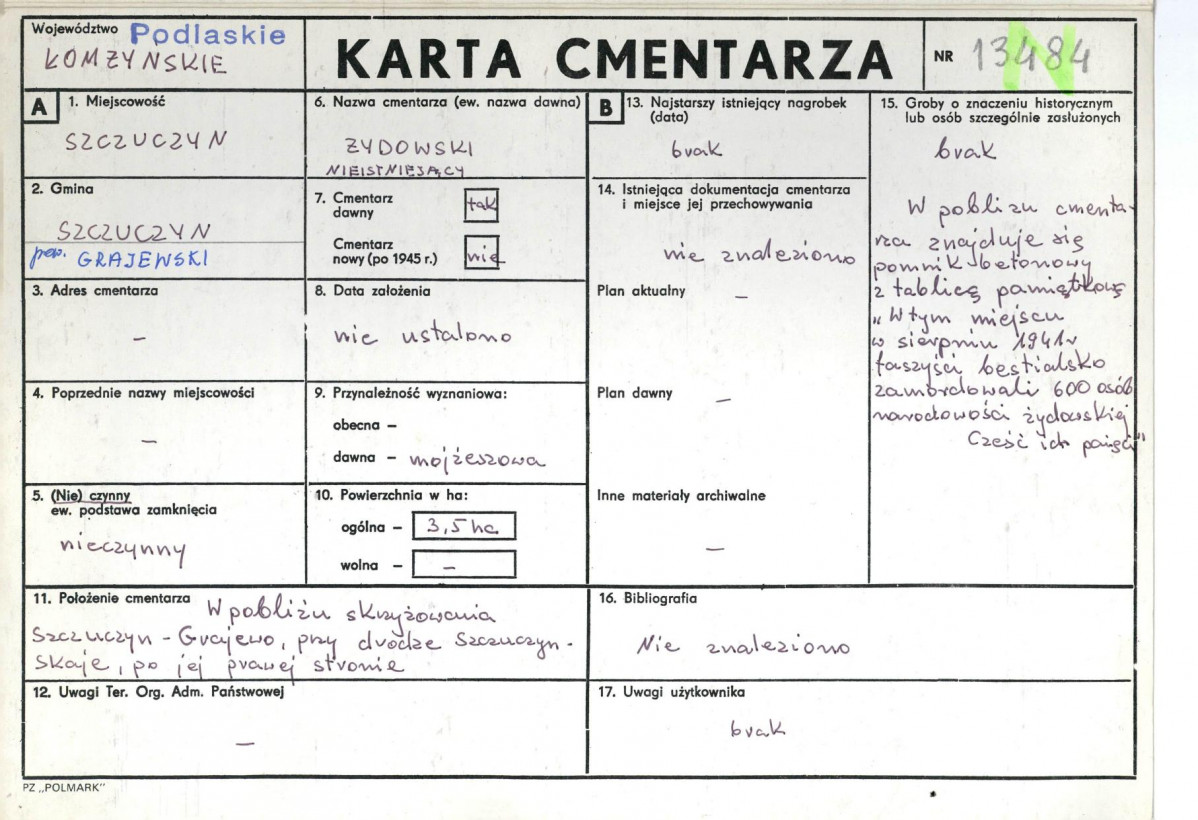 Województwo Podlaskie
ŁOMŻYŃSKIE
KARTA CMENTARZA
NR 13484
N
A
1. Miejscowość
SZCZUCZYN
2. Gmina
SZCZUCZYN
pow. GRAJEWSKI
3. Adres cmentarza
–
4. Poprzednie nazwy miejscowości
–
5. (Nie) czynny
ew. podstawa zamknięcia
nieczynny
6. Nazwa cmentarza (ew. nazwa dawna)
ŻYDOWSKI
NIEISTNIEJĄCY
7. Cmentarz
dawny
tak
Cmentarz
nowy (po 1945 r.)
nie
8. Data założenia
nie ustalono
9. Przynależność wyznaniowa:
obecna –
dawna – mojżeszowa
10. Powierzchnia w ha:
ogólna – 3,5 ha
wolna – –
11. Położenie cmentarza W pobliżu skrzyżowania
Szczuczyn - Grajewo, przy drodze Szczuczyn -
Skaje, po jej prawej stronie
12. Uwagi Ter. Org. Adm. Państwowej
–
B
13. Najstarszy istniejący nagrobek
(data)
brak
14. Istniejąca dokumentacja cmentarza
i miejsce jej przechowywania
nie znaleziono
Plan aktualny –
Plan dawny –
Inne materiały archiwalne
–
15. Groby o znaczeniu historycznym
lub osób szczególnie zasłużonych
brak
W pobliżu cmenta-
rza znajduje się
pomnik betonowy
z tablicą pamiątkową
„W tym miejscu
w sierpniu 1941r
faszyści bestialsko
zamordowali 600 osób
narodowości żydowskiej
Cześć ich pamięci"
16. Bibliografia
Nie znaleziono
17. Uwagi użytkownika
brak
PZ „POLMARK"